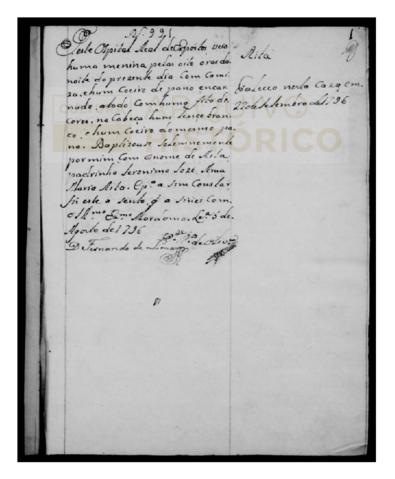 Nº 991
1
Neste Ospital Real de Expostos veio
huma menina, pelas oito oras da
noite do prezente dia Com Cami-
za, e hum Coeiro de pano encar
nado, atado Com huma fita de
Cores, na Cabeça hum Lenço bran
co, e hum Coeiro do mesmo pa
no. Baptizouse Solemnemente
por mim Com o nome de Rita
padrinho Jeronimo Joze, Anna
Maria Rita. E pª a Sim Constar
fiz este a Sento, q a Sinei Com
o Mordomo. Lxª 5 de
Agosto de 1796
Fernando de
Rita
Faleceo nesta Caza em
de Setembro de 1796
ARQUIVO
HISTÓRICO